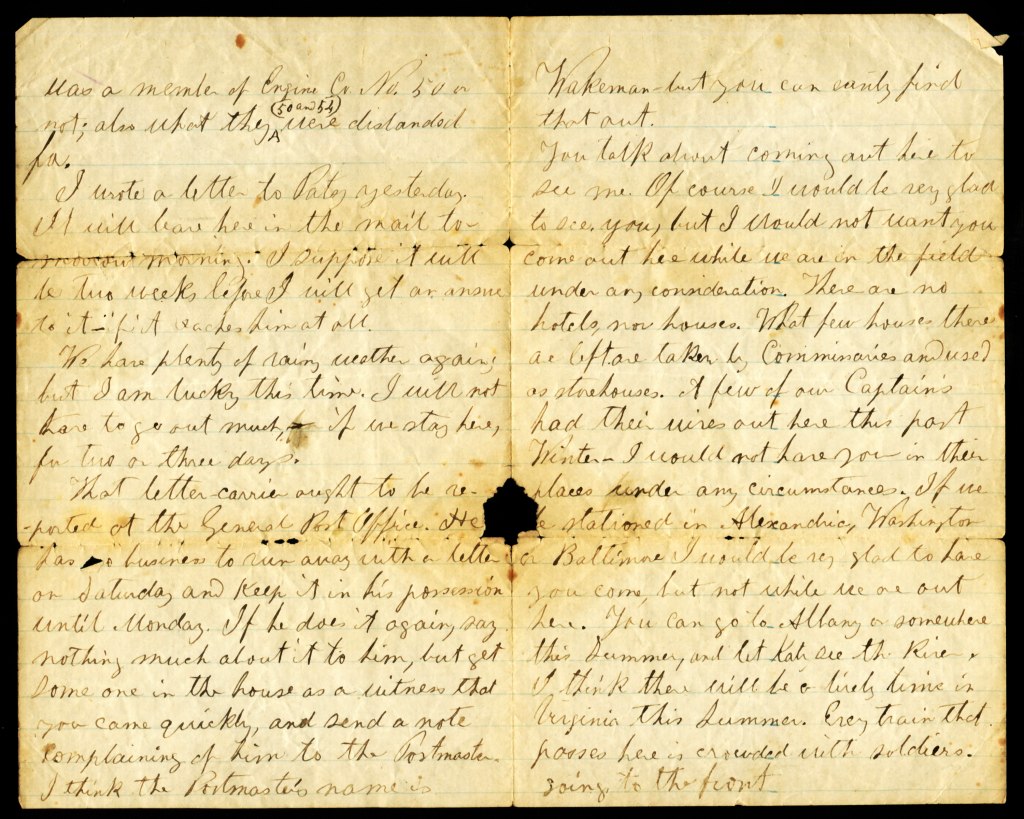 was a member of Engine Co. No. 50 or
not; also what they (50 and 54) were disbanded
for.
I wrote a letter to Patsy yesterday.
It will leave here in the mail to-
morrow morning. I suppose it will
be two weeks before I will get an answer
to it – if it reaches him at all.
We have plenty of rainy weather again,
but I am lucky this time. I will not
have to go out much, – if we stay here,
for two or three days.
That letter-carrier ought to be re-
-ported at the General Post Office. He
has no business to run away with a letter
on Saturday and keep it in his possession
until Monday. If he does it again, say
nothing much about it to him, but get
some one in the house as a witness that
you came quickly, and send a note
complaining of him to the Postmaster.
I think the Postmaster's name is
Wakeman – but you can easily find
that out.
You talk about coming out here to
see me. Of course I would be very glad
to see you, but I would not want you
come out here while we are in the field
under any consideration. There are no
hotels, nor houses. What few houses there
are left are taken by Commissaries and used
as storehouses. A few of our Captains
had their wives out here this past
Winter – I would not have you in their
places under any circumstances. If we
be stationed in Alexandria, Washington
or Baltimore I would be very glad to have
you come, but not while we are out
here. You can go to Albany or somewhere
this Summer, and let Kate see the River.
I think there will be a lively time in
Virginia this Summer. Every train that
passes here is crowded with soldiers.
going to the front